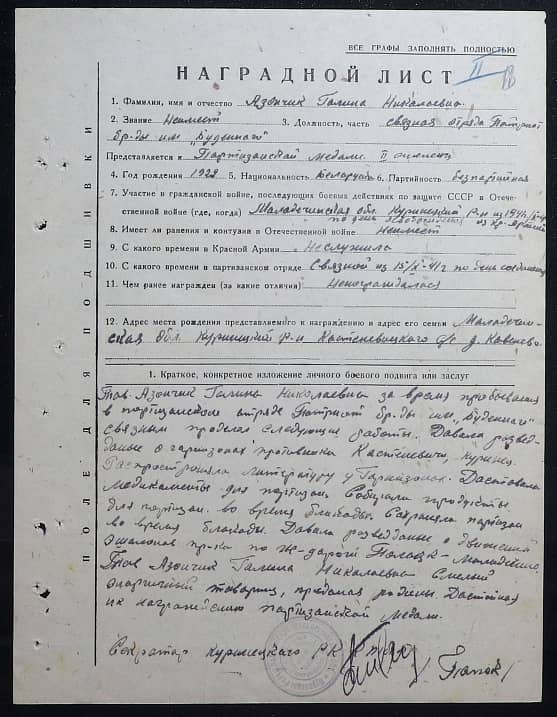 ВСЕ ГРАФЫ ЗАПОЛНЯТЬ ПОЛНОСТЬЮ
НАГРАДНОЙ ЛИСТ II
1. Фамилия, имя и отчество Азончик Галина Николаевна
2. Звание Неимеет 3. Должность, часть связная отряда Патриот
бр-ды им. „Буденного“
Представляется к Партизанской медали II степень
4. Год рождения 1928 5. Национальность Беларуска 6. Партийность безпартийная
7. Участие в гражданской войне, последующих боевых действиях по защите СССР и Отече-
ственной войне (где, когда) Маладечинская обл. Куринецкий р-н из 1941
по день
8. Имеет ли ранения и контузии в Отечественной войне Неимеет
9. С какого времени в Красной Армии Неслужила
10. С какого времени в партизанском отряде Связной из 15/X-41г по день соединения
11. Чем ранее награжден (за какие отличия) Ненаграждалася
12. Адрес места рождения представляемого к награждению и адрес его семьи Маладечин-
ская обл. Куриницкий р-н Костеневицкого с/с д.
1. Краткое, конкретное изложение личного боевого подвига или заслуг
Тов. Азончик Галина Николаевна за время пребывания
в партизанском отряде Патриот бр-ды им. „Буденного“
связным проделал следующие работы. Давала развед-
данные о гарнизонах противника Костеневичи, куринец.
Распространяла литературу у Гарнизонах. Доставала
медикаменты для партизан. Собирала продукты
для партизан во время блокады. Сохраняла партизан
во время блокады. Давала разведданые о движении
эшалонов пр-ка по ж-дороги Полоцк - Маладечино.
Тов Азончик Галина Николаевна Смелый
энаргичный товарищ, предана родины. Достойная
к награждению партизанской медали.
Секратар Куринецкого РК
ПОЛЕ ДЛЯ ПОДШИВКИ